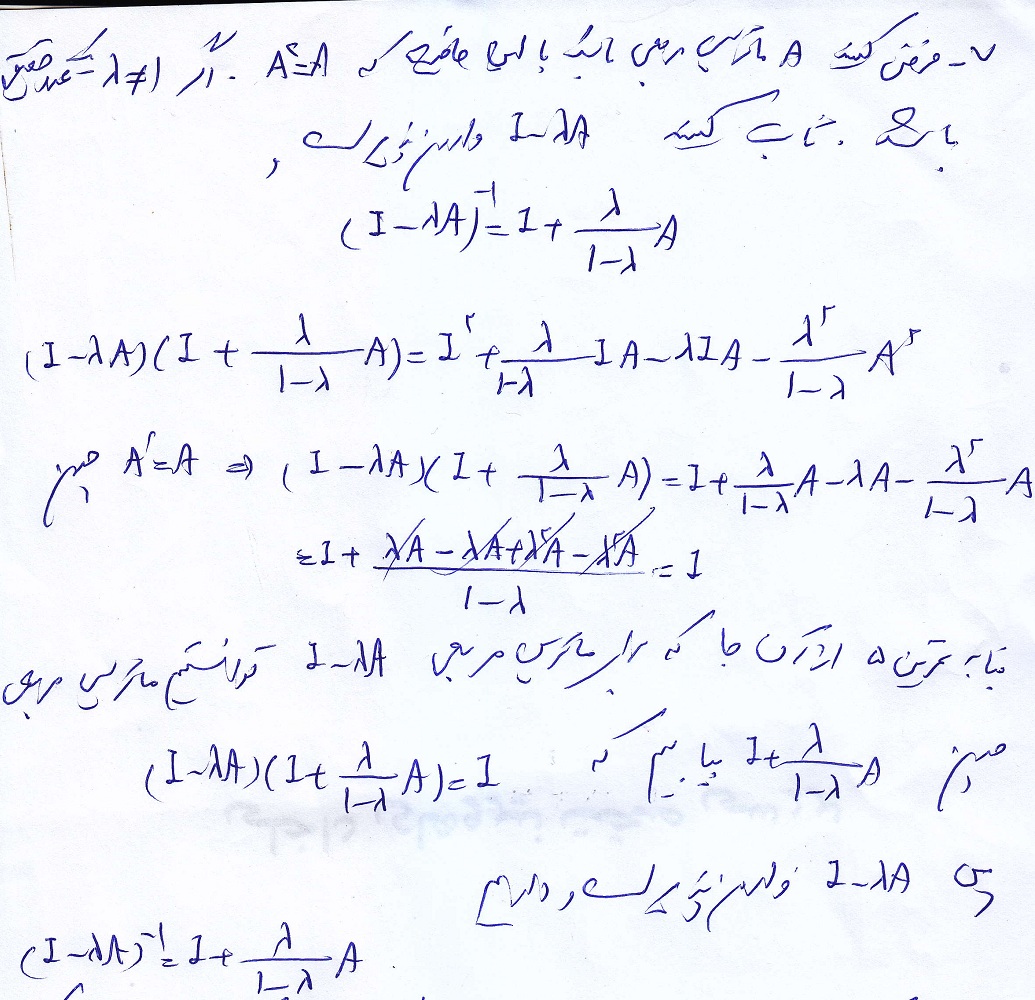 ۷- فرض کنید A ماتریس مربعی باشد با این خاصیت که A²=A . اگر λ≠1 یک عدد حقیقی
باشد . ثابت کنید I-λA وارون پذیر است و
(I-λA)⁻¹=I+\frac{λ}{1-λ}A
(I-λA)(I+\frac{λ}{1-λ}A)=I²+\frac{λ}{1-λ}IA-λIA-\frac{λ²}{1-λ}A²
چون A²=A ⇒ (I-λA)(I+\frac{λ}{1-λ}A)=I+\frac{λ}{1-λ}A-λA-\frac{λ²}{1-λ}A
=I+\frac{λA-λA+λ²A-λ²A}{1-λ}=I
بنابه تمرین ۵ از آن جا که برای ماتریس مربعی I-λA توانستیم ماتریس مربعی
چون I+\frac{λ}{1-λ}A بیابیم که (I-λA)(I+\frac{λ}{1-λ}A)=I
پس I-λA وارون پذیر است و داریم
(I-λA)⁻¹=I+\frac{λ}{1-λ}A